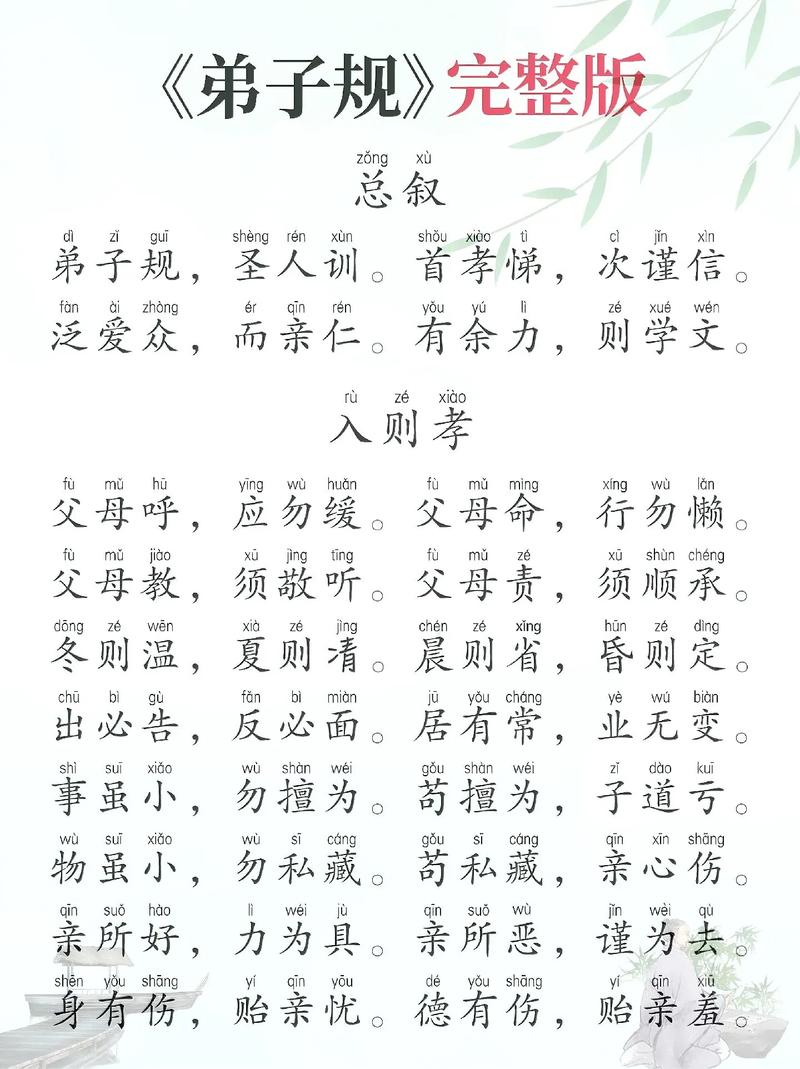 《弟子规》完整版
zǒng xù
总叙
dì zǐ guī shèng rén xùn shǒu xiào tì cì jǐn xìn
弟子规，圣人训。首孝悌，次谨信。
fàn ài zhòng ér qīn rén yǒu yú lì zé xué wén
泛爱众，而亲仁。有余力，则学文。
rù zé xiào
入则孝
fù mǔ hū yīng wù huǎn fù mǔ mìng xíng wù lǎn
父母呼，应勿缓。父母命，行勿懒。
fù mǔ jiào xū jìng tīng fù mǔ zé xū shùn chéng
父母教，须敬听。父母责，须顺承。
dōng zé wēn xià zé jìng chén zé xǐng hūn zé dìng
冬则温，夏则凊。晨则省，昏则定。
chū bì gù fǎn bì miàn jū yǒu cháng yè wú biàn
出必告，反必面。居有常，业无变。
shì suī xiǎo wù shàn wéi gǒu shàn wéi zǐ dào kuī
事虽小，勿擅为。苟擅为，子道亏。
wù suī xiǎo wù sī cáng gǒu sī cáng qīn xīn shāng
物虽小，勿私藏。苟私藏，亲心伤。
qīn suǒ hào lì wéi jù qīn suǒ wù jǐn wèi qù
亲所好，力为具。亲所恶，谨为去。
shēn yǒu shāng yí qīn yōu dé yǒu shāng yí qīn xiū
身有伤，贻亲忧。德有伤，贻亲羞。